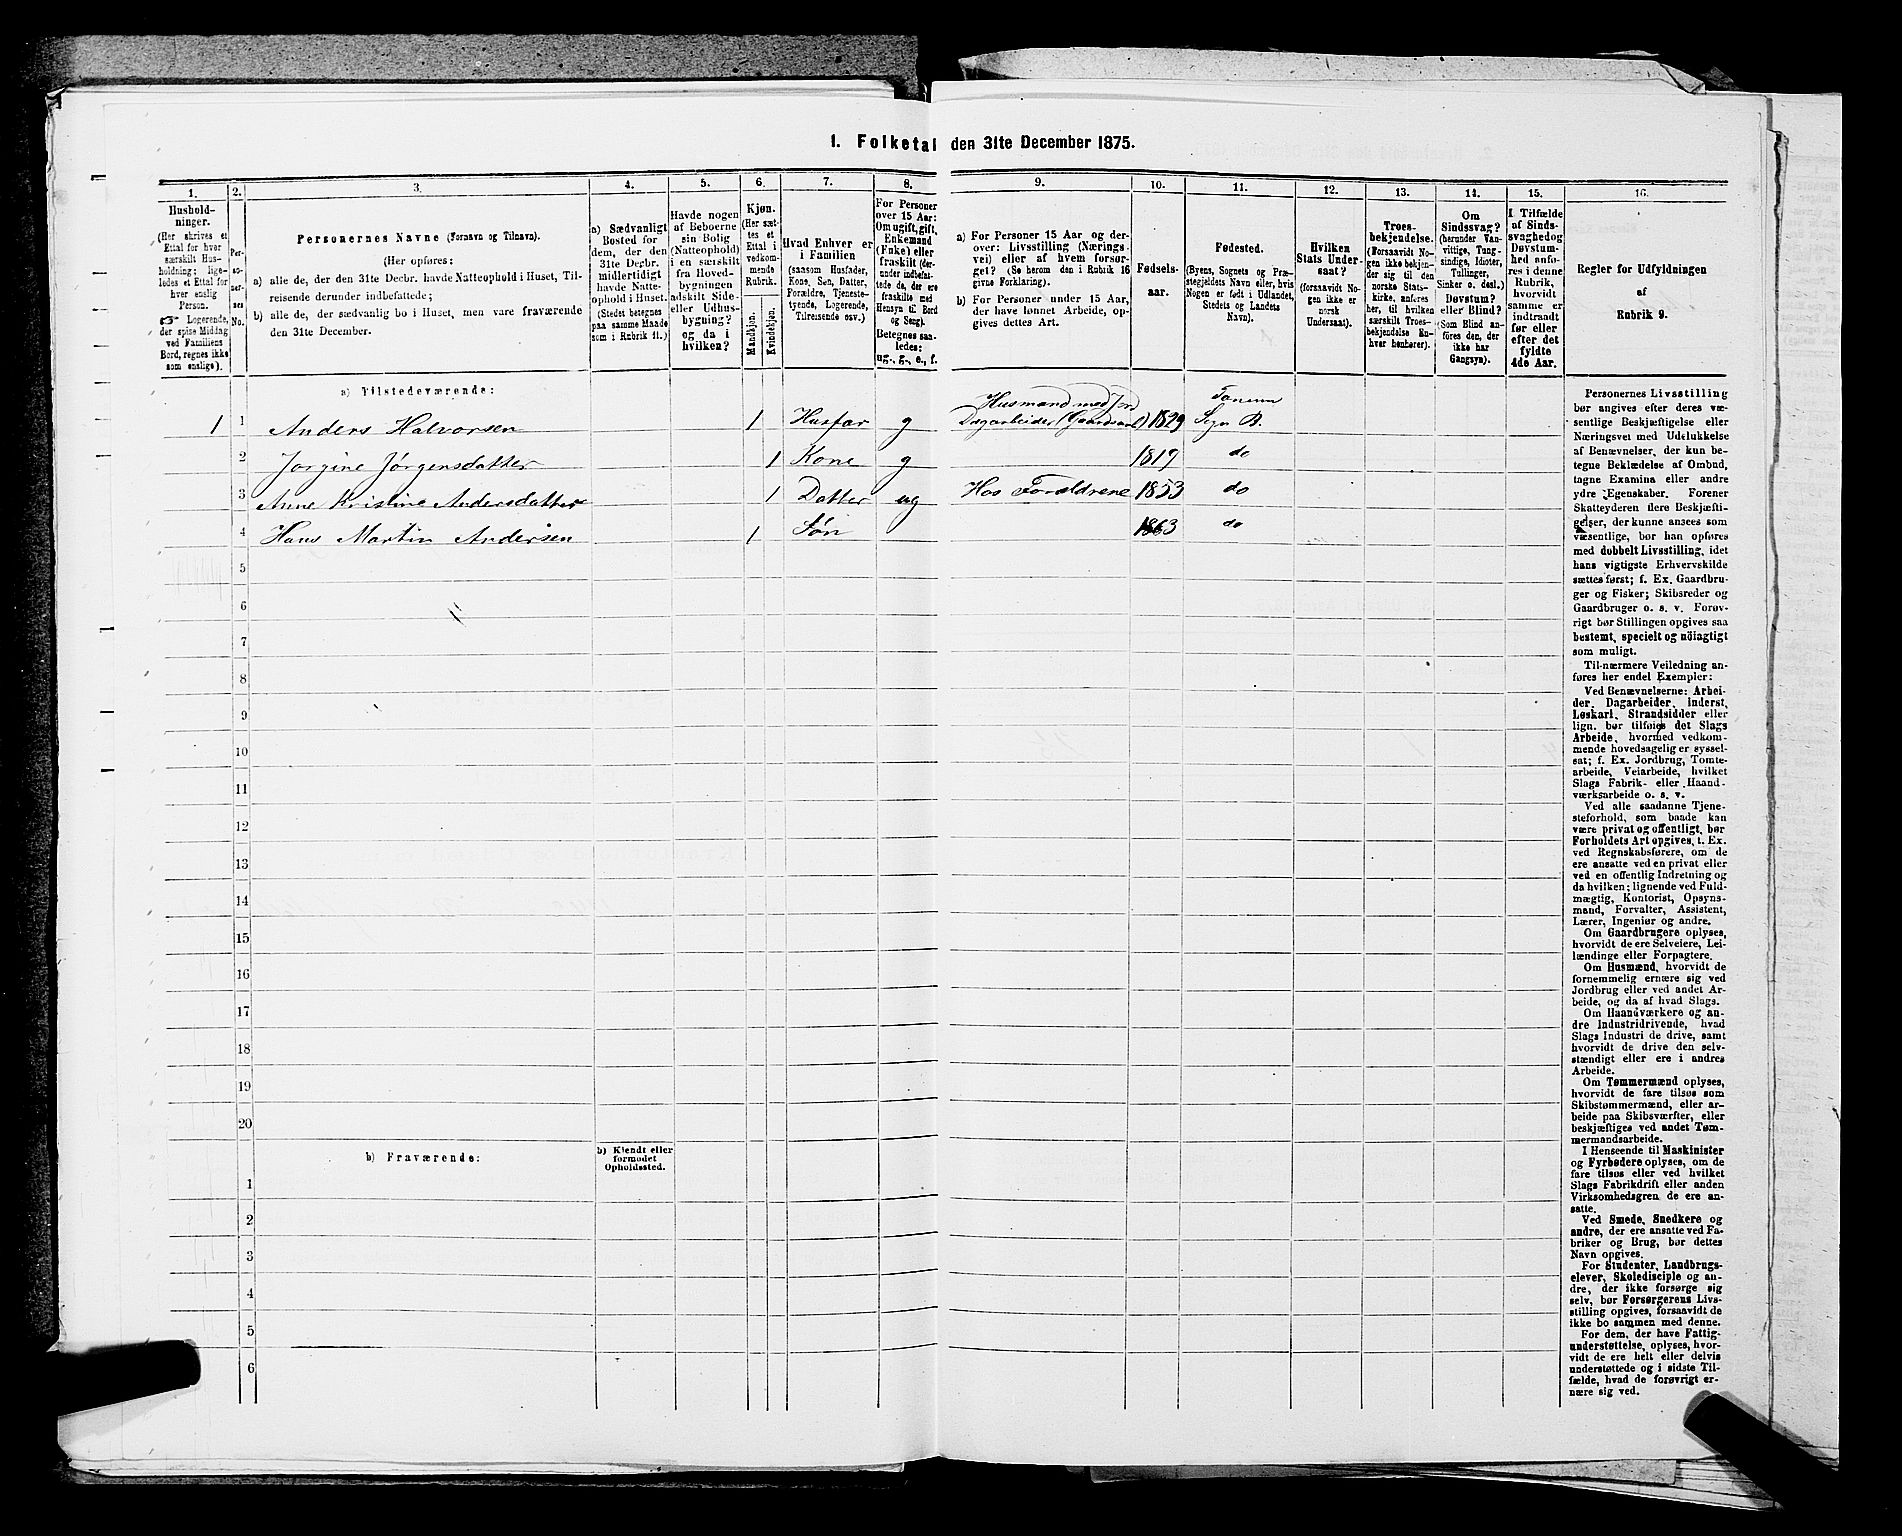 1. Folketal den 31te December 1875.
1.
2.
3.
4.
5.
6.
7.
8.
9.
10.
11.
12.
13.
14.
15.
16.
Hushold-
ninger.
(Her skrives et
Ettal for hver
særskilt Hus-
holdning; lige-
ledes et Ettal for
hver enslig
Person.
☞ Logerende,
der spise Middag
ved Familiens
Bord, regnes ikke
som enslige).
Per-
so-
ner-
nes
No.
Personernes Navne (Fornavn og Tilnavn).
(Her opføres:
a) alle de, der den 31te Decbr. havde Natteophold i Huset, Til-
reisende derunder indbefattede;
b) alle de, der sædvanlig bo i Huset, men vare fraværende
den 31te December.
a) Sædvanligt
Bosted for
dem, der den
31te Decbr.
midlertidigt
havde Natte-
ophold i Huset.
(Stedet betegnes
paa samme Maade
som i Rubrik 11.)
Havde nogen
af Beboerne
sin Bolig
(Natteophold)
i en særskilt
fra Hoved-
bygningen
adskilt Side-
eller Udhus-
bygning?
og da i
hvilken?
Kjøn.
(Her sæt-
tes et
Ettal i
vedkom-
mende
Rubrik.
Mandkjøn.
Kvindekjøn.
Hvad Enhver er
i Familien
(saasom Husfader,
Kone, Søn, Datter,
Forældre, Tjeneste-
tyende, Logerende,
Tilreisende osv.)
For Personer
over 15 Aar:
Om ugift, gift,
Enkemand
(Enke) eller
fraskilt (der-
under indbefat-
tede de, der ere
fraskilte med
Hensyn til Bord
og Seng).
Betegnes saa-
ledes:
ug., g., e., f.
a) For Personer 15 Aar og der-
over: Livsstilling (Nærings-
vei) eller af hvem forsør-
get? (Se herom den i Rubrik 16
givne Forklaring).
b) For Personer under 15 Aar,
der have lønnet Arbeide, op-
gives dettes Art.
Fødsels-
aar.
Fødested.
(Byens, Sognets og Præ-
stegjeldets Navn eller, hvis
Nogen er født i Udlandet,
Stedets og Landets
Navn).
Hvilken
Stats Under-
saat?
(forsaavidt No-
gen ikke er
norsk
Undersaat).
Troes-
bekjendelse.
(Forsaavidt No-
gen ikke bekjen-
der sig til den
norske Stats-
kirke, anføres
her, til hvilken
særskilt Troes-
bekjendelse En-
hver henhører).
Om
Sindssvag?
(herunder Van-
vittige, Tung-
sindige, Idioter,
Tullinger,
Sinker o. desl.)
Døvstum?
eller Blind?
(Som Blind an-
føres den, der
ikke har
Gangsyn).
I Tilfælde
af Sinds-
svaghed og
Døvstum-
hed anfø-
res i denne
Rubrik,
hvorvidt
samme er
indtraadt
før eller
efter det
fyldte
4de Aar.
Regler for Udfyldningen
af
Rubrik 9.
a) Tilstedeværende:
1 1 Anders Halvorsen 1 Husfar g Husmand med Jord Dagarbeider 1829 Sogn B.
2 Jørgine Jørgensdatter 1 Kone g 1819 do
3 Anne Kristine Andersdatter 1 Datter ug Hos Forældrene 1853 do
4 Hans Martin Andersen 1 Søn 1863 do
5
6
7
8
9
10
11
12
13
14
15
16
17
18
19
20
b) Fraværende:
b) Kjendt eller
formodet
Opholdssted.
1
2
3
4
5
6
Personernes Livsstilling
bør angives efter deres væ-
sentlige Beskjæftigelse eller
Næringsvei med Udelukkelse
af Benævnelser, der kun be-
tegne Beklædelse af Ombud,
tagne Examina eller andre
ydre Egenskaber. Forener
Skatteyderen flere Beskjæfti-
gelser, der kunne ansees som
væsentlige, bør han opføres
med dobbelt Livsstilling, idet
hans vigtigste Erhvervskilde
sættes først; f. Ex. Gaardbru-
ger og Fisker; Skibsreder og
Gaardbruger o. s. v. Forøv-
rigt bør Stillingen opgives saa
bestemt, specielt og nöiagtigt
som muligt.
Til nærmere Veiledning an-
føres her endel Exempler:
Ved Benævnelserne: Arbei-
der, Dagarbeider, Inderst,
Løskarl, Strandsidder eller
lign. bør tilføies det Slags
Arbeide, hvormed vedkom-
mende hovedsagelig er syssel-
sat; f. Ex. Jordbrug, Tomte-
arbeide, Veiarbeide, hvilket
Slags Fabrik- eller Haand-
værksarbeide o. s. v.
Ved alle saadanne Tjene-
steforhold, som baade kan
være privat og offentligt, bør
Forholdets Art opgives, t. Ex.
ved Regnskabsførere, om de
ere ansatte ved en privat eller
ved en offentlig Indretning og
da hvilken; lignende ved Fuld-
mægtig, Kontorist, Opsyns-
mand, Forvalter, Assistent,
Lærer, Ingeniør og andre.
Om Gaardbrugere oplyses,
hvorvidt de ere Selveiere, Lei-
lændinge eller Forpagtere.
Om Husmænd, hvorvidt de
fornemmelig ernære sig ved
Jordbrug eller ved andet Ar-
beide, og da af hvad Slags.
Om Haandværkere og an-
dre Industridrivende, hvad
Slags Industri de drive, samt
hvorvidt de drive den selv-
stændigt eller ere i andres
Arbeide.
Om Tømmermænd oplyses,
hvorvidt de fare tilsøs som
Skibstømmermænd, eller ar-
beide paa Skibsværfter, eller
beskjæftiges ved andet Tøm-
mermandsarbeide.
I Henseende til Maskinister
og Fyrbødere oplyses, om de
fare tilsøs eller ved hvilket
Slags Fabrikdrift eller anden
Virksomhedsgren de ere an-
satte.
Ved Smede, Snedkere og
andre, der ere ansatte ved Fa-
briker og Brug, bør dettes
Navn opgives.
For Studenter, Landbrugs-
elever, Skoledisciple og an-
dre, der ikke forsørge sig
selv, bør Forsørgerens Livs-
stilling opgives, forsaavidt de
ikke bo sammen med denne.
For dem, der have Fattig-
understøttelse, oplyses, hvor-
vidt de ere helt eller delvis
understøttede og i sidste Til-
fælde, hvad de forøvrigt er-
nære sig ved.